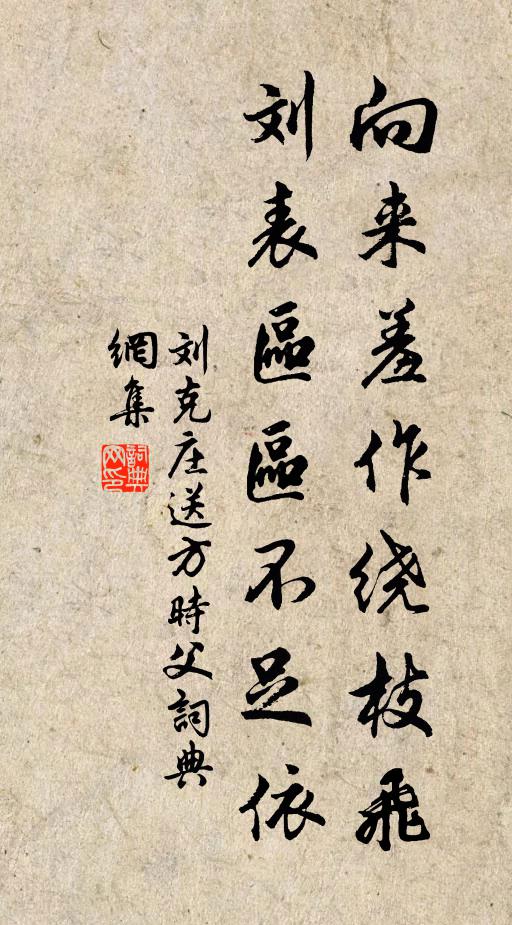 向来羞作绕枝飛
刘表區區不足依
刘克庄送方時父詞典
網集
詞典网印